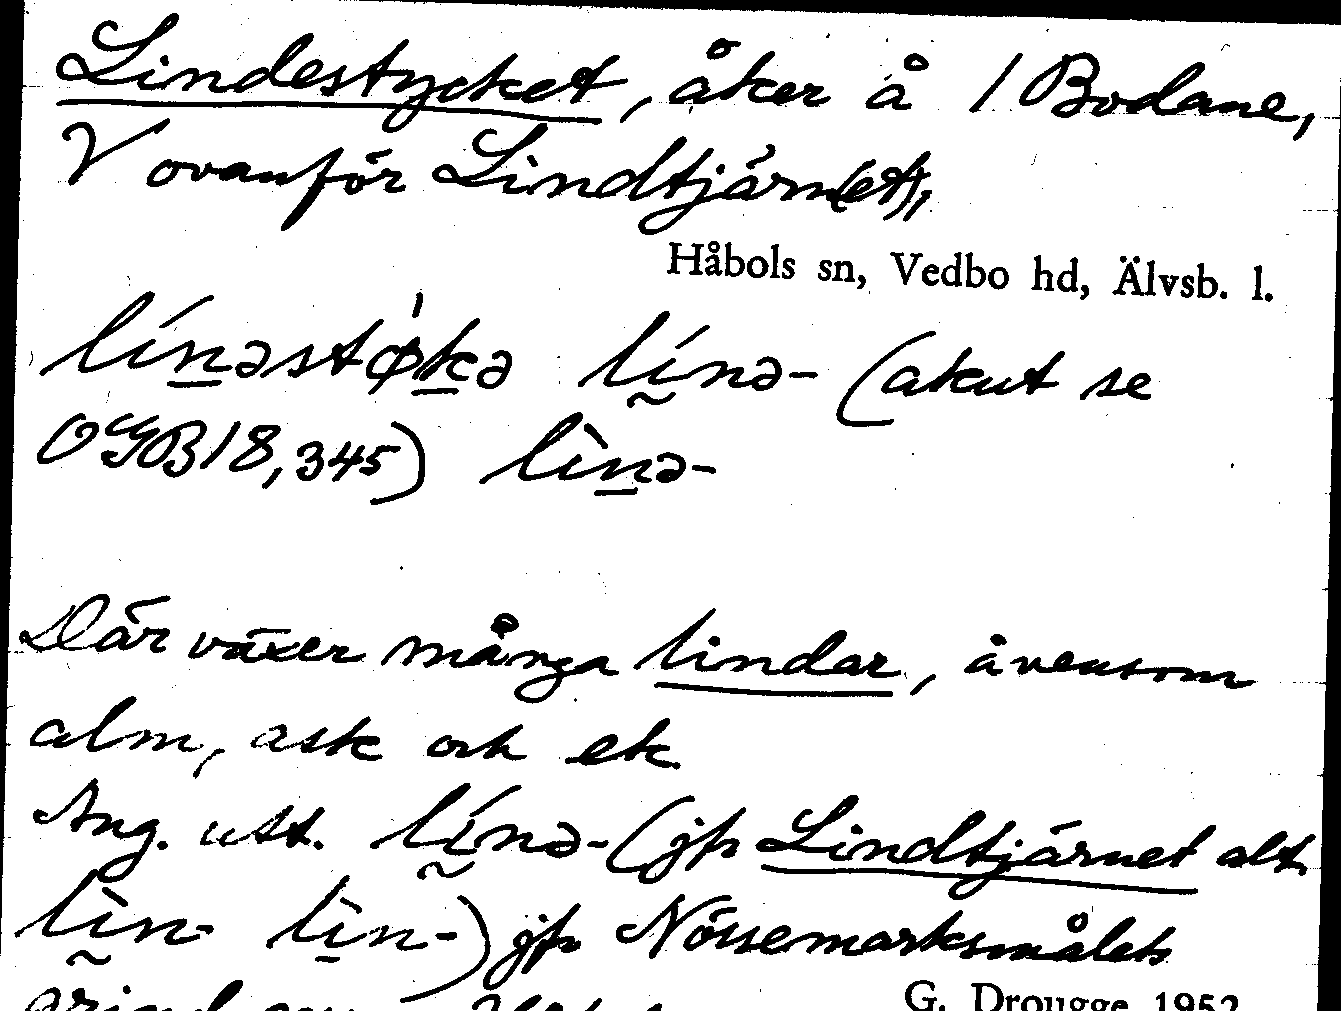 Lindestycket, åker å 1 Bodane,
V ovanför Lindtjärn(et),
Håbols sn, Vedbo hd, Älvsb. l.
línəstø̍kə línə- (akut se
OGB18,345) lìnə-
Där växer många lindar, ävensom
alm, ask och ek
Ang. utt. lḭ́nə- (jfr Lindtjärnet alt.
lḭ̀n- lìn-) jfr Nössemarksmålets
G. Drougge 1952